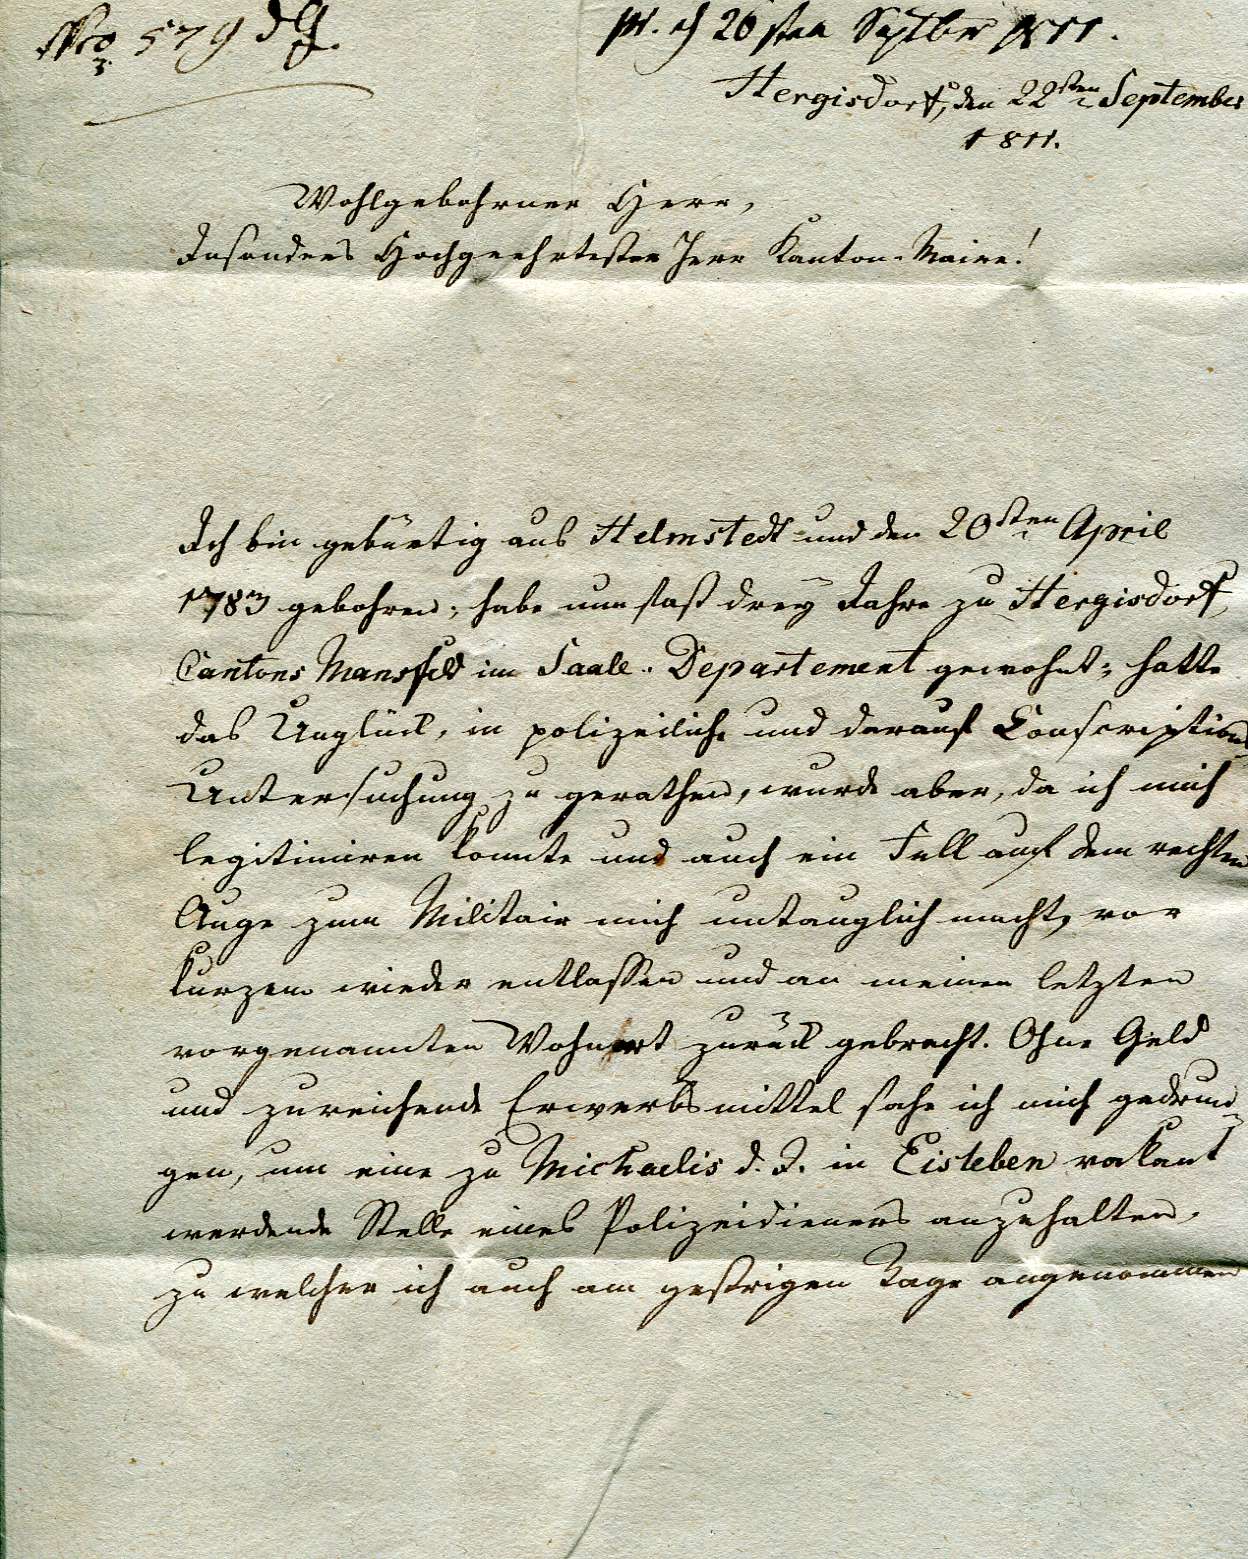 Nro 579
pr. d 26sten Septbr 1811.
Hergisdorf, den 22sten September
1811.
Wohlgebohrner Herr,
Insonders Hochgeehrtester Herr Kanton-Maire!
Ich bin gebürtig aus Helmstedt und den 20sten April
1783 gebohren; habe nun fast drey Jahre zu Hergisdorf,
Cantons Mansfeld im Saale-Departement gewohnt; hatte
das Unglück, in polizeiliche und darauf Conscriptions
Untersuchung zu gerathen, wurde aber, da ich mich
legitimiren konnte und auch ein Fell auf dem rechten
Auge zum Militair mich untauglich macht, vor
kurzem wieder entlassen und an meinen letzten
vorgenannten Wohnort zurück gebracht. Ohne Geld
und zureichende Erwerbsmittel sahe ich mich gedrun-
gen, um eine zu Michaelis d. J. in Eisleben vakant
werdende Stelle eines Polizeidieners anzuhalten,
zu welcher ich auch am gestrigen Tage angenommen